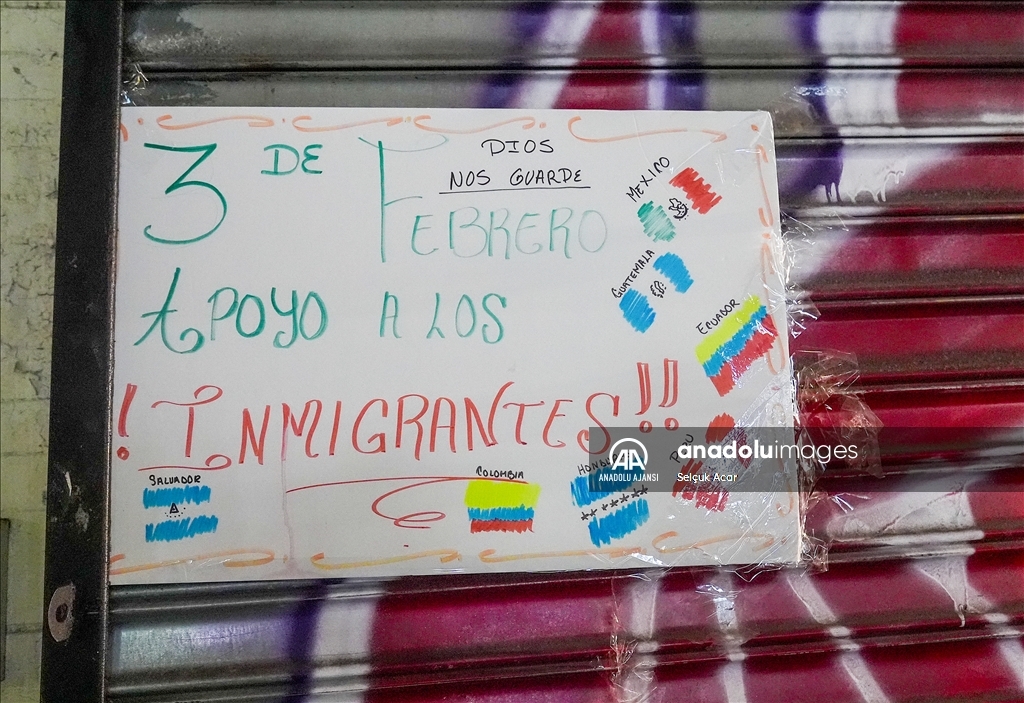 DIOS
NOS GUARDE
3 DE FEBRERO
APOYO A LOS
! INMIGRANTES!!
MEXICO
GUATEMALA
ECUADOR
PERU
HONDU
COLOMBIA
SALVADOR
AA
ANADOLU AJANSI
anadoluimages
Selçuk Acar